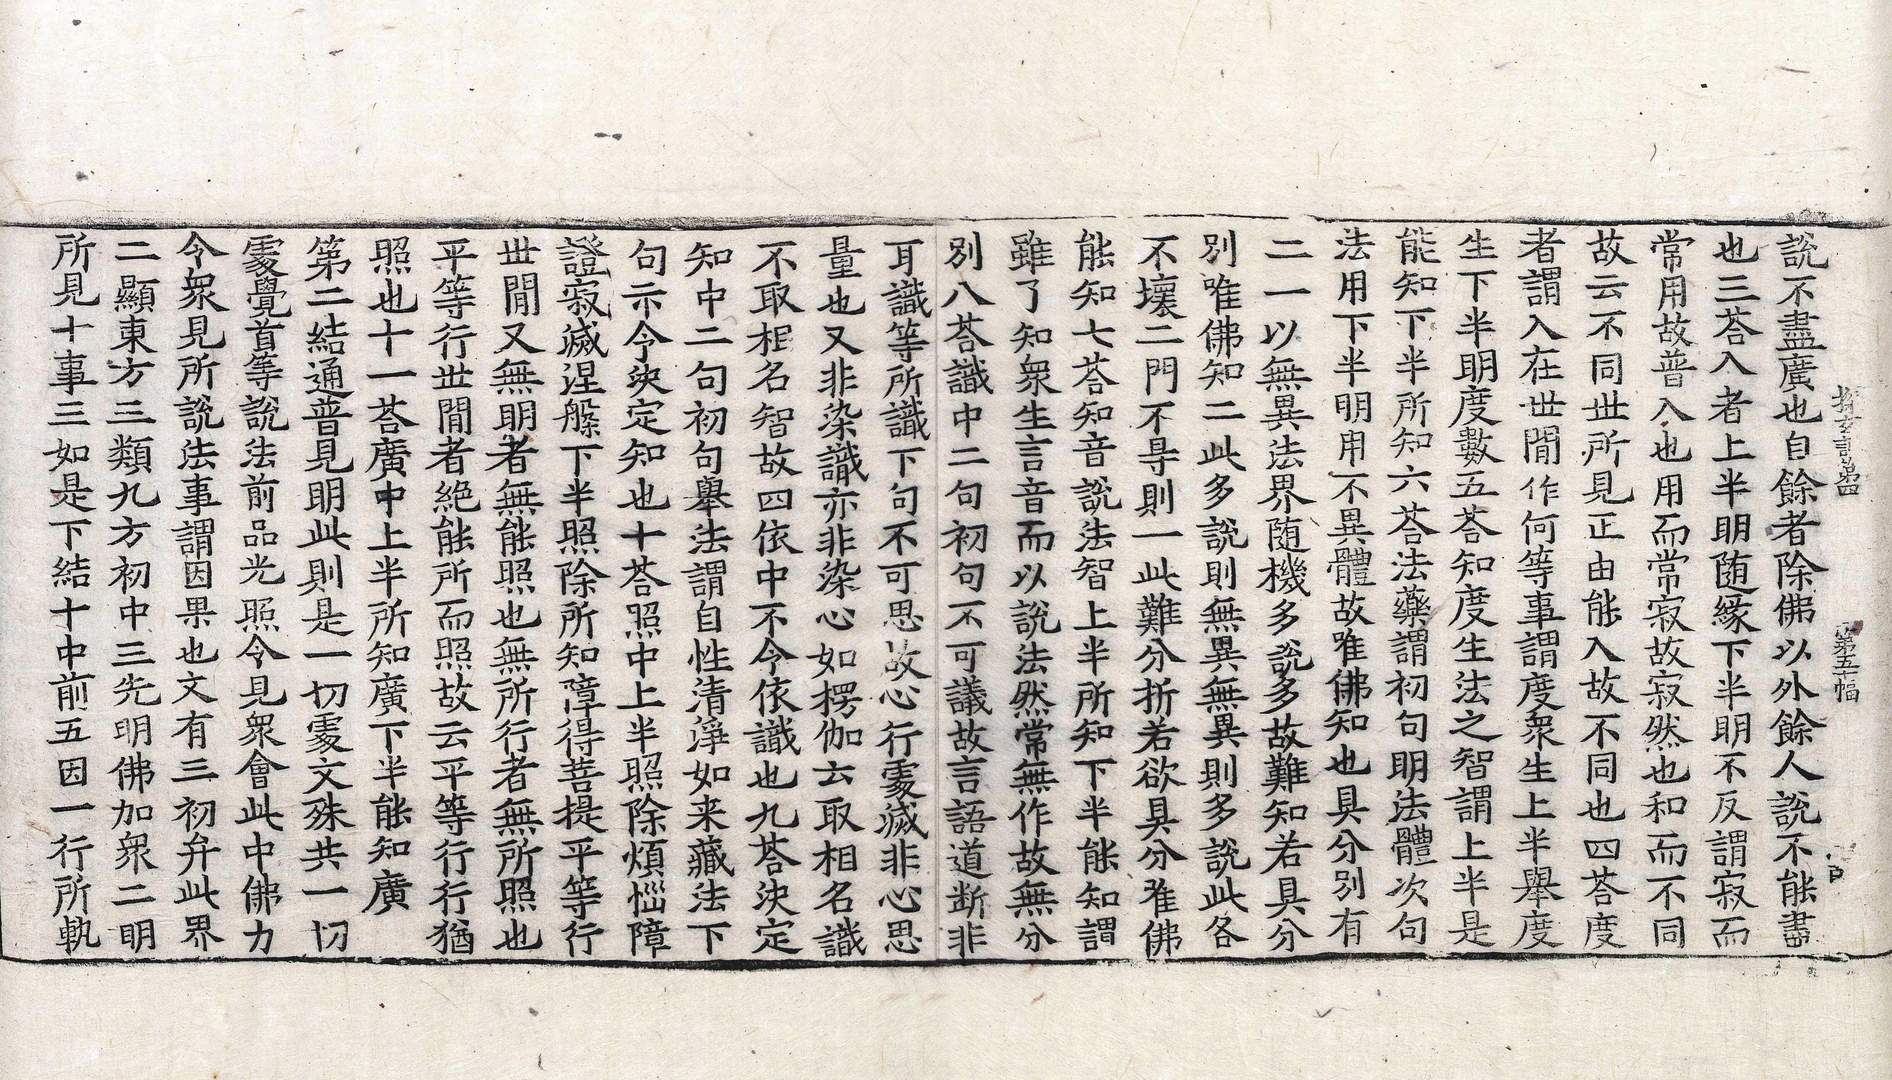 探玄記第四 第五十幅
說不盡廣也自餘者除佛以外餘人說不能盡
也三荅入者上半明随緣下半明不反謂寂而
常用故普入也用而常寂故寂然也和而不同
故云不同世所見正由能入故不同也四荅度
者謂入在世閒作何等事謂度衆生上半舉度
生下半明度數五荅知度生法之智謂上半是
能知下半所知六荅法藥謂初句明法體次句
法用下半明用不異體故唯佛知也具分別有
二一以無異法界随機多說多故難知若具分
別唯佛知二此多說則無異無異則多說此各
不壞二門不㝵則一此難分折若欲具分唯佛
能知七荅知音說法智上半所知下半能知謂
雖了知衆生言音而以說法然常無作故無分
別八荅識中二句初句不可議故言語道断非
耳識等所識下句不可思故心行䖏滅非心思
量也又非染識亦非染心如楞伽云取相名識
不取相名智故四依中不令依識也九荅決定
知中二句初句舉法謂自性清淨如来藏法下
句示令決定知也十荅照中上半照除煩惱障
證寂滅涅槃下半照除所知障得菩提平等行
世閒又無明者無能照也無所行者無所照也
平等行世閒者絶能所而照故云平等行行猶
照也十一荅廣中上半所知廣下半能知廣
第二結通普見明此則是一切䖏文殊共一切
䖏覺首等說法前品光照令見衆會此中佛力
令衆見所說法事謂因果也文有三初弁此界
二顯東方三類九方初中三先明佛加衆二明
所見十事三如是下結十中前五因一行所軌